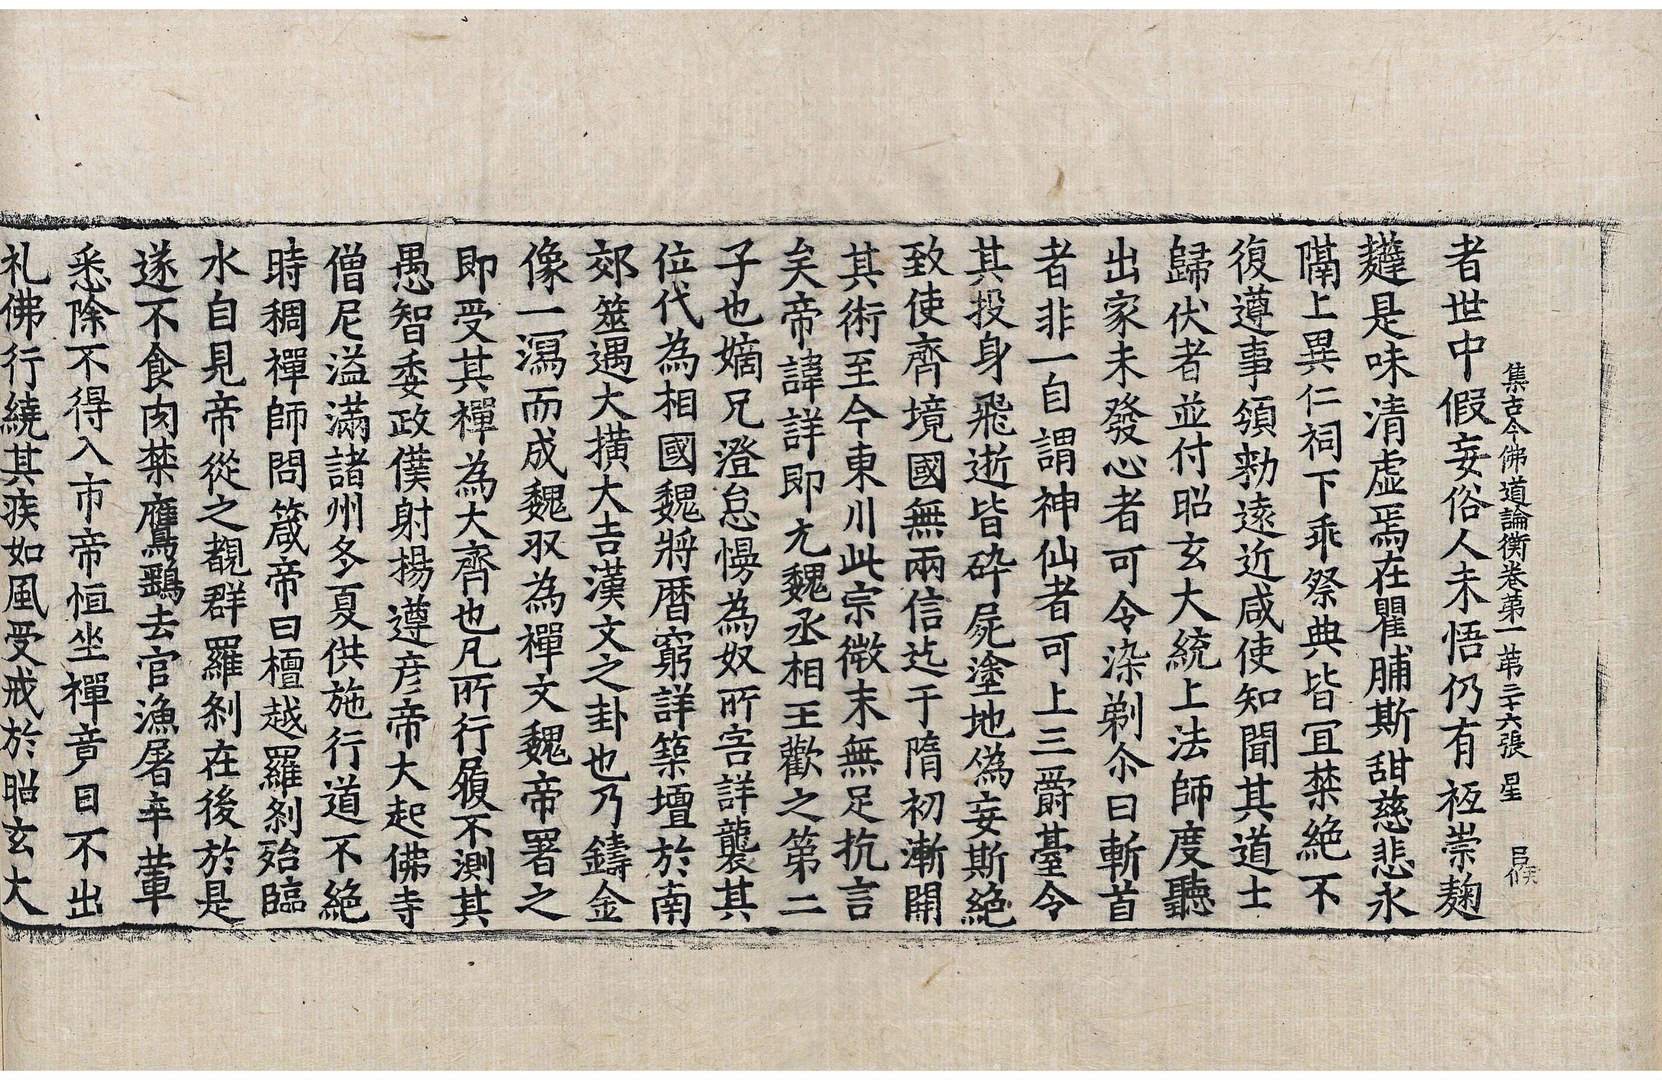 集古今佛道論衡卷第一 第三十六張 星
者世中假妄俗人未悟仍有祗崇麹
糱是味清虛焉在瞿脯斯甜慈悲永
隔上異仁祠下乖祭典皆宜禁絶不
復遵事頒勑遠近咸使知聞其道士
歸伏者並付昭玄大統上法師度聽
出家未發心者可令染剃尒日斬首
者非一自謂神仙者可上三爵臺令
其投身飛逝皆碎屍塗地偽妄斯絶
致使齊境國無兩信迄于隋初漸開
其術至今東川此宗微末無足抗言
矣帝諱詳即元魏丞相王歡之第二
子也嫡兄澄怠慢為奴所害詳襲其
位代為相國魏將曆窮詳築壇於南
郊筮遇大撗大吉漢文之卦也乃鑄金
像一瀉而成魏収為禪文魏帝署之
即受其禪為大齊也凡所行履不測其
愚智委政僕射揚遵彦帝大起佛寺
僧尼溢滿諸州冬夏供施行道不絶
時稠禪師問箴帝曰檀越羅刹殆臨
水自見帝從之覩群羅刹在後於是
遂不食肉禁鷹鷂去官漁屠辛葷
悉除不得入市帝恒坐禪竟日不出
礼佛行繞其疾如風受戒於昭玄大